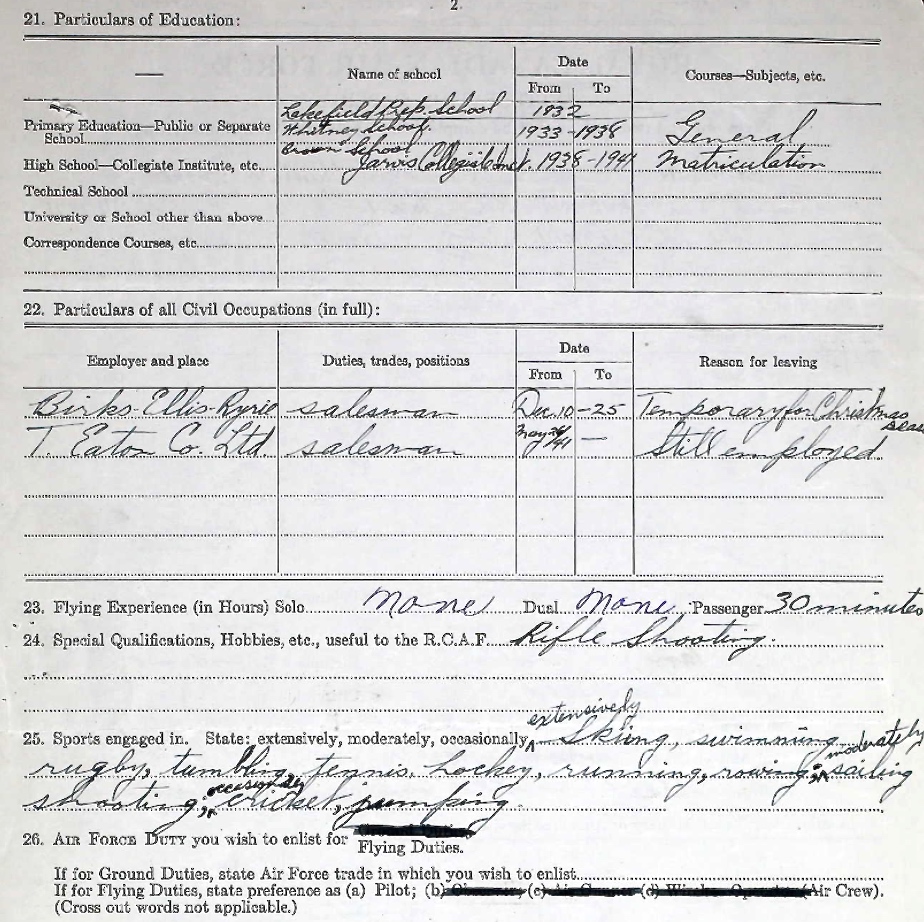 2
21. Particulars of Education:
— Name of school Date Courses—Subjects, etc.
From To
Lakefield Prep. School 1932
Primary Education—Public or Separate Whitney School. 1933 - 1938 General
School Brown School
High School—Collegiate Institute, etc. Jarvis Collegiate Inst. 1938 - 1941 Matriculation
Technical School
University or School other than above
Correspondence Courses, etc.
22. Particulars of all Civil Occupations (in full):
Employer and place Duties, trades, positions Date Reason for leaving
From To
Birks-Ellis-Ryrie salesman Dec. 10 - 25 Temporary for Christmas
T. Eaton Co. Ltd. salesman May 41 — Still employed
23. Flying Experience (in Hours) Solo None Dual None Passenger 30 minutes
24. Special Qualifications, Hobbies, etc., useful to the R.C.A.F. Rifle Shooting.
extensively
25. Sports engaged in. State: extensively, moderately, occasionally Skiing, swimming
rugby, tumbling, tennis, hockey, running, rowing; moderately sailing
shooting; occasionally cricket, jumping
26. AIR FORCE DUTY you wish to enlist for Ground Duties
Flying Duties.
If for Ground Duties, state Air Force trade in which you wish to enlist
If for Flying Duties, state preference as (a) Pilot; (b) Observer; (c) Air Gunner (d) Wireless Operator (Air Crew).
(Cross out words not applicable.)